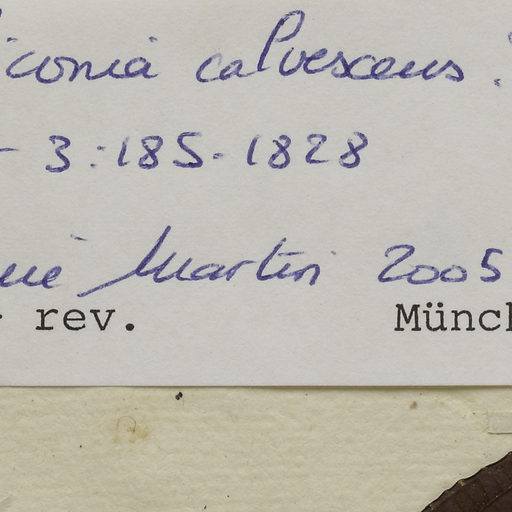 iconia calvescens
- 3:185. 1828
né Martin 2005
rev. Münch